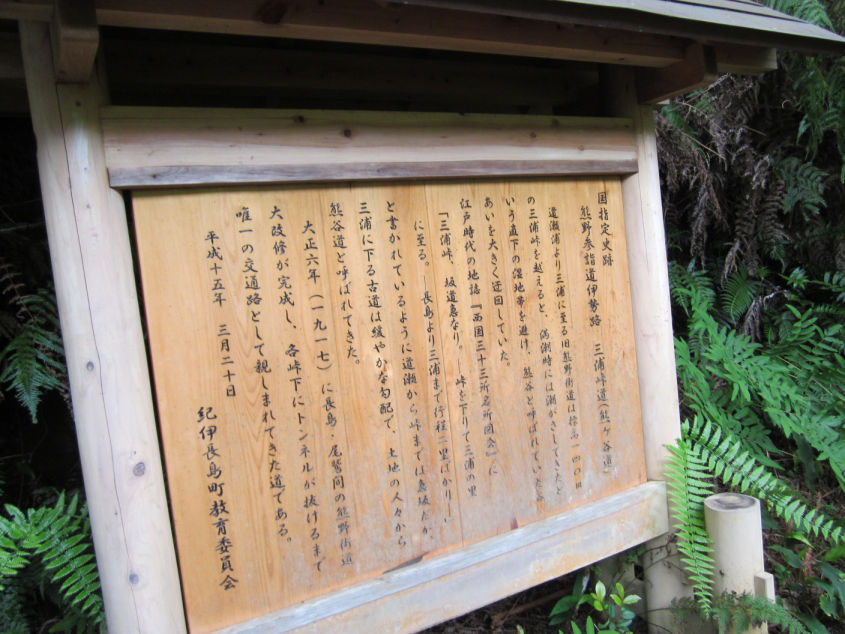 国指定史跡
熊野参詣道伊勢路　三浦峠道（熊ヶ谷道）
道瀬浦より三浦に至る旧熊野街道は標高一四〇ｍ
の三浦峠を越えると、満潮時には潮がさしてきたと
いう直下の湿地帯を避け、熊谷と呼ばれていた谷
あいを大きく迂回していた。
江戸時代の地誌『西国三十三所名所図会』に
「三浦峠、坂道急なり。―峠を下りて三浦の里
に至る。―長島より三浦まで行程二里ばかり―」
と書かれているように道瀬から峠までは急坂だが、
三浦に下る古道は緩やかな勾配で、土地の人々から
熊谷道と呼ばれてきた。
大正六年（一九一七）に長島・尾鷲間の熊野街道
大改修が完成し、各峠下にトンネルが抜けるまで
唯一の交通路として親しまれてきた道である。
平成十五年　三月二十日
紀伊長島町教育委員会